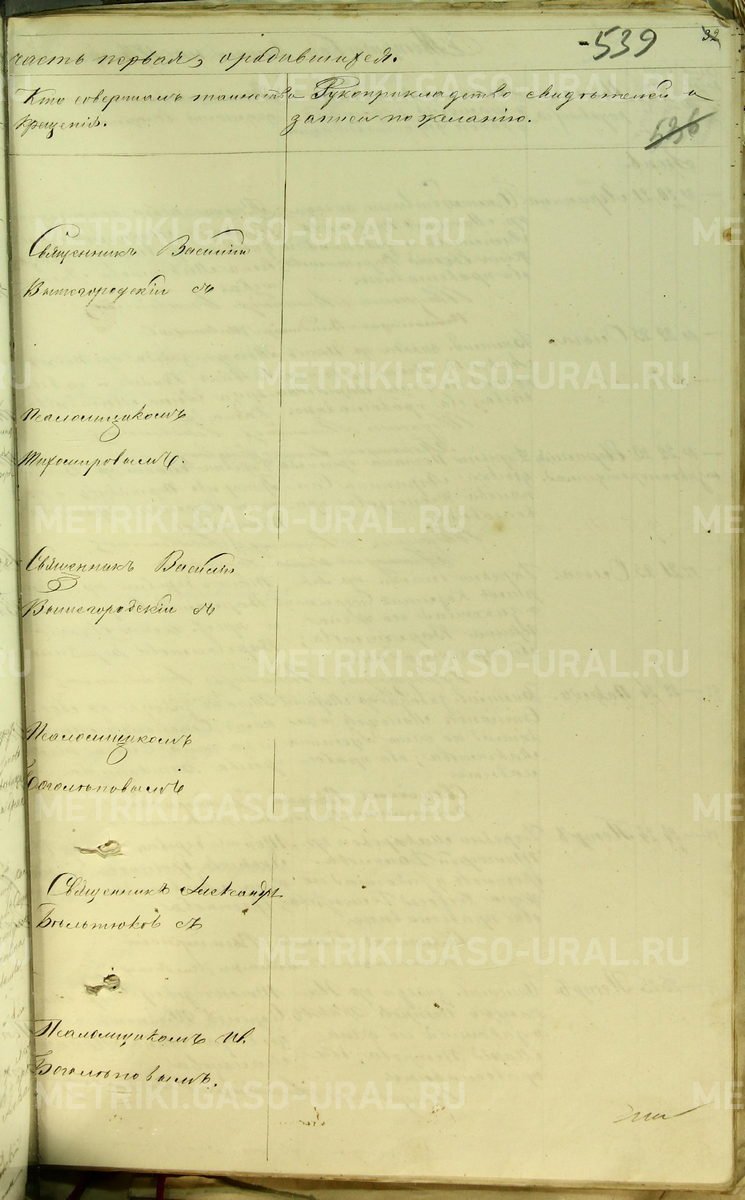 539
32
часть первая, о родившихся.
Кто совершалъ таинство крещенія.
Рукоприкладство свидѣтелей и
записи по желанію.
536
Священникъ Василій
Вышегородскій съ
Псаломщикомъ
Тихомировымъ.
Священникъ Василій
Вышегородскій съ
Псаломщикомъ
Боголѣповымъ
Священникъ Александръ
съ
Псаломщикомъ Ив.
Боголѣповымъ.
METRIKI.GASO-URAL.RU